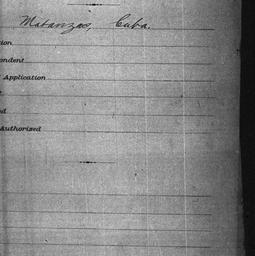 Matanzas, Cuba.
tion
ondent
Application
t
ed
Authorized